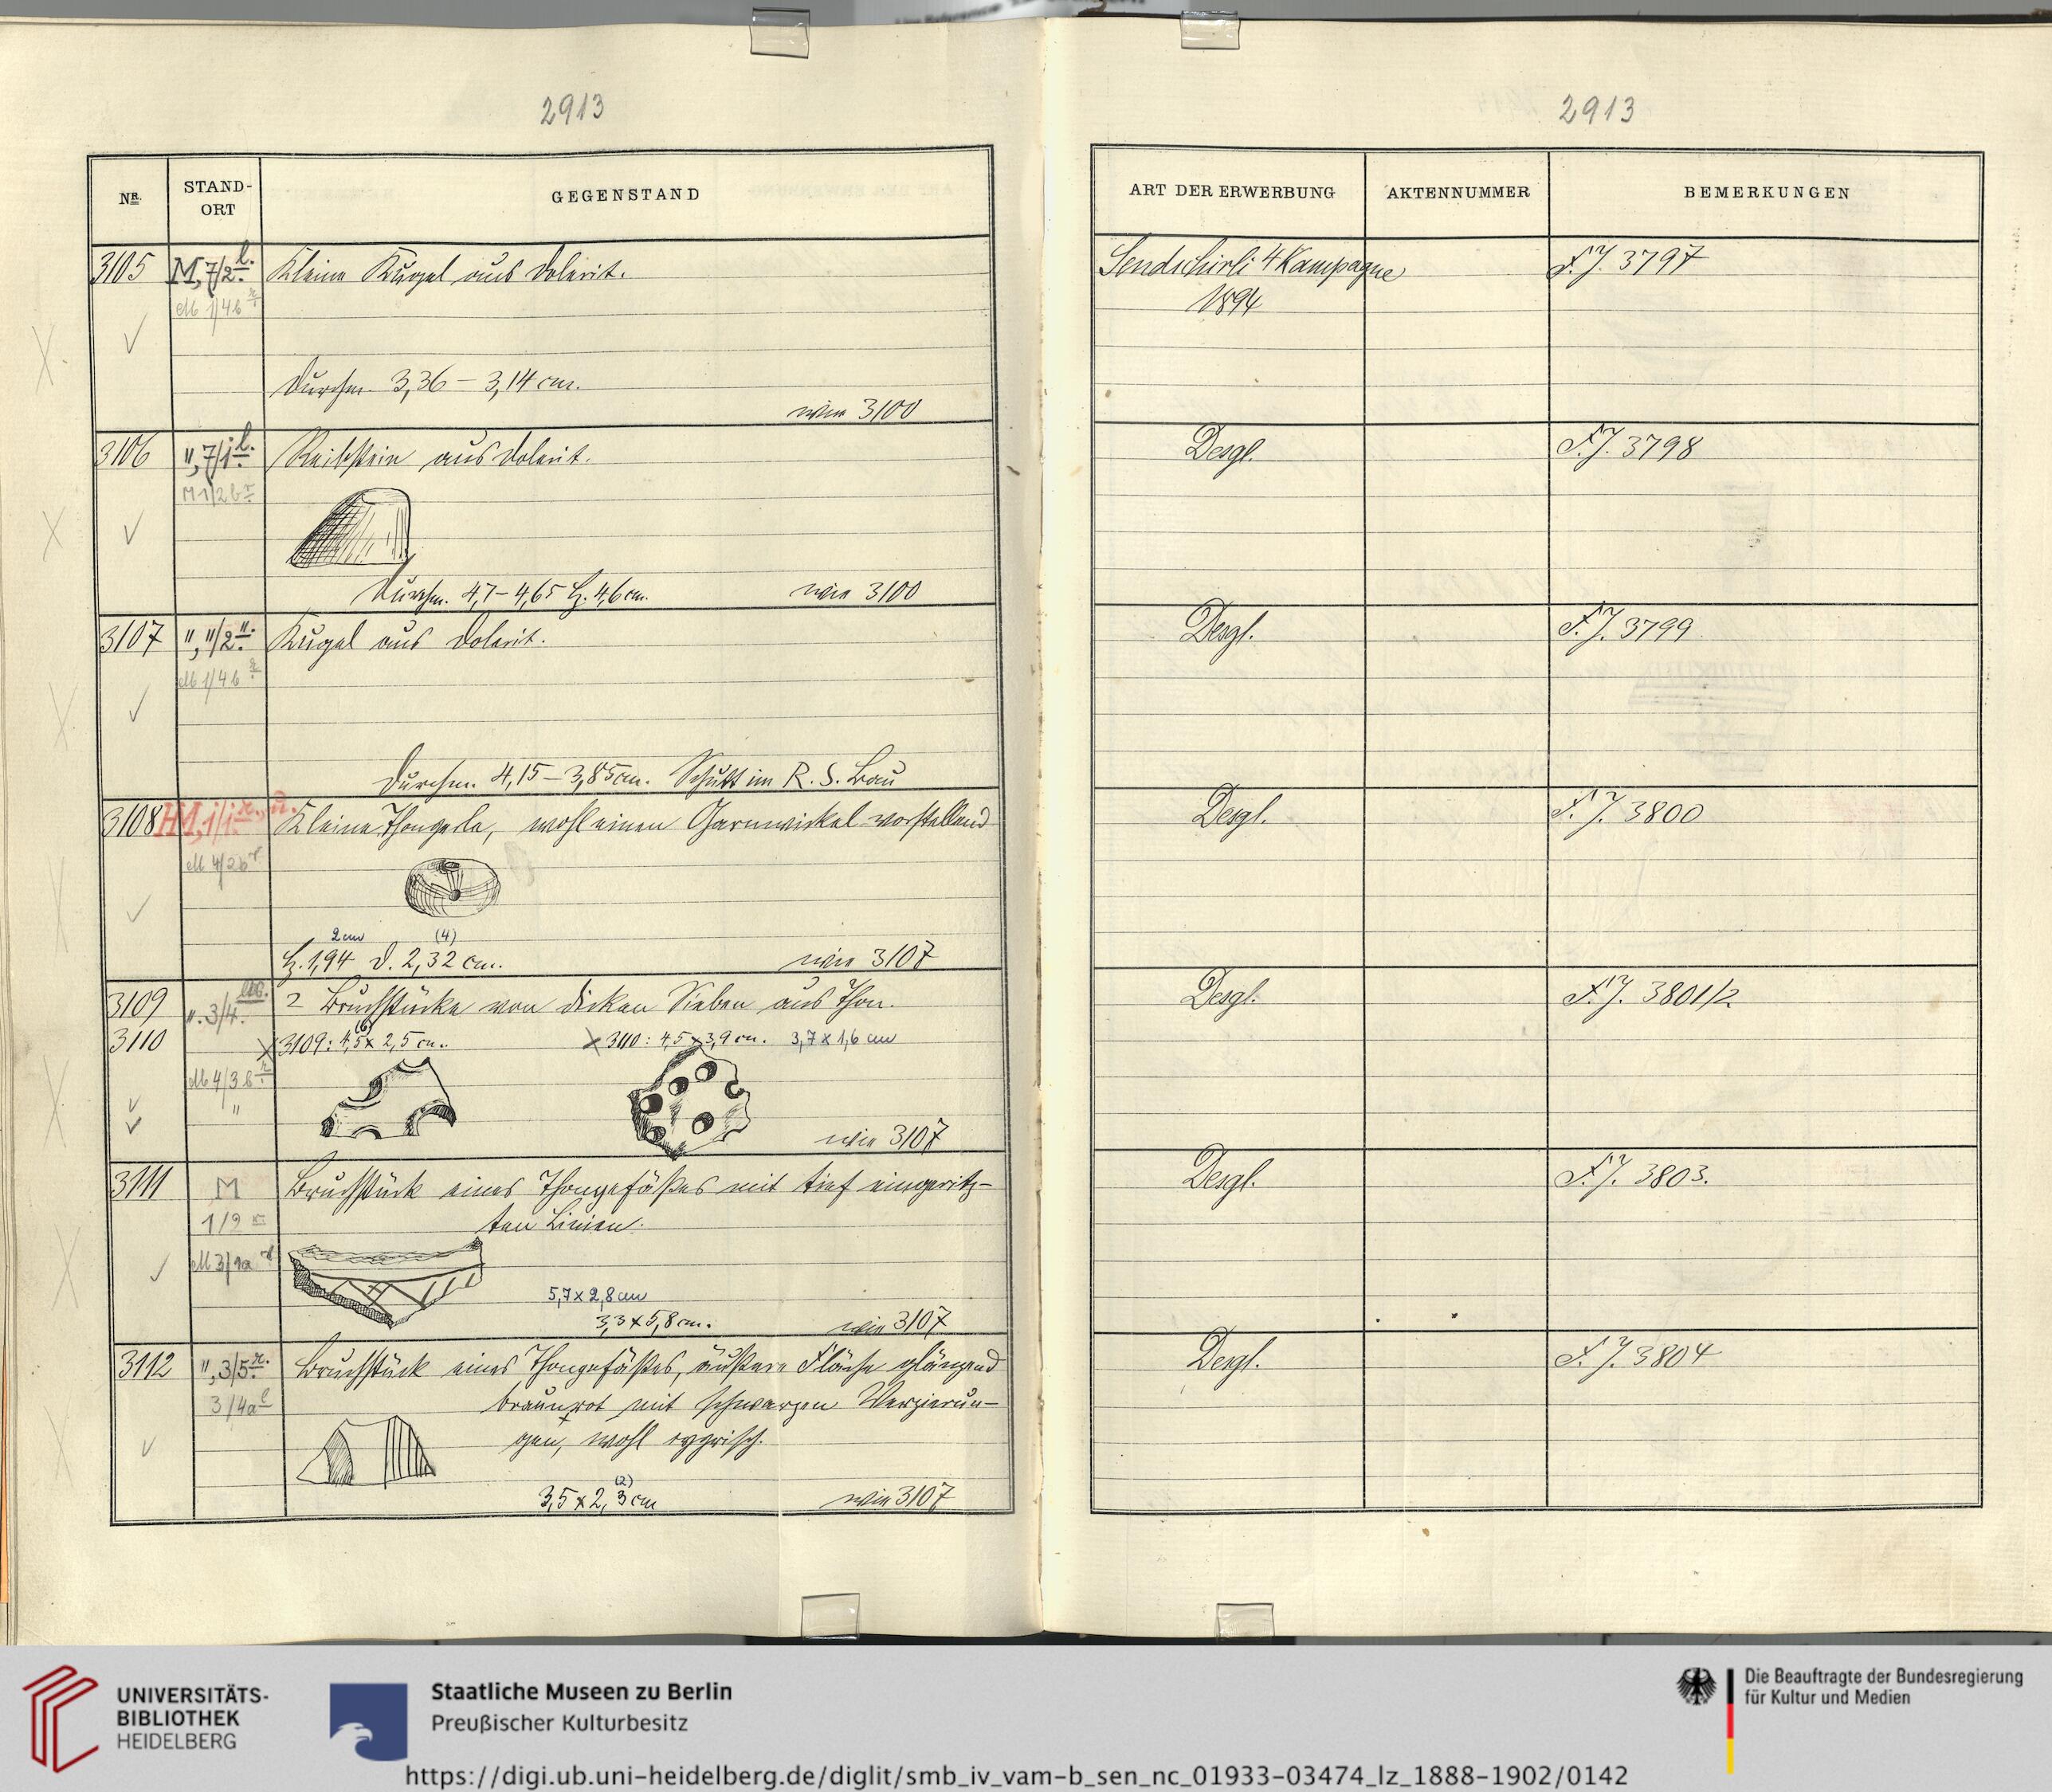 2913
NR.
STAND-
ORT
GEGENSTAND
3105
M, 7/2 l.
Kleine Kugel aus Dolerit.
M 1/4b r
Durchm. 3,36 – 3,14 cm.
wie 3100
3106
", 7/1 l.
Reibstein aus Dolerit.
M 1/2b r
Durchm. 4,7 – 4,65 H. 4,6 cm.
wie 3100
3107
", "/2 ".
Kugel aus Dolerit.
M 1/4b
Durchm. 4,15 – 3,85 cm. Schutt im R. S. Bau
3108
HM, 1/1
Kleine Thonperle, wohl einen Garnwickel vorstellend
M 4/2b r
2 cm (4)
H. 1,94 D. 2,32 cm.
wie 3107
3109
". 3/4.
2 Bruchstücke von dicken Sieben aus Thon.
3110
3109: 4,5 x 2,5 cm.
(6)
X 3110: 4,5 x 3,9 cm. 3,7 x 1,6 cm
M 4/3b r
"
wie 3107
3111
M
Bruchstück eines Thongefäßes mit tief eingeritz-
1/9
ten Linien.
M 3/1a
5,7 x 2,8 cm
3,3 x 5,8 cm.
wie 3107
3112
", 3/5 r.
Bruchstück eines Thongefäßes, äußere Fläche glänzend
3/4a l
braunrot mit schwarzen Verzierun-
gen, wohl cyprisch.
(2)
3,5 x 2,3 cm
wie 3107
2913
ART DER ERWERBUNG
AKTENNUMMER
BEMERKUNGEN
Sendschirli 4 Kampagne
1894
F. J. 3797
Desgl.
F. J. 3798
Desgl.
F. J. 3799
Desgl.
F. J. 3800
Desgl.
F. J. 3801/2
Desgl.
F. J. 3803.
Desgl.
F. J. 3804
UNIVERSITÄTS-
BIBLIOTHEK
HEIDELBERG
Staatliche Museen zu Berlin
Preußischer Kulturbesitz
Die Beauftragte der Bundesregierung
für Kultur und Medien
https://digi.ub.uni-heidelberg.de/diglit/smb_iv_vam-b_sen_nc_01933-03474_lz_1888-1902/0142